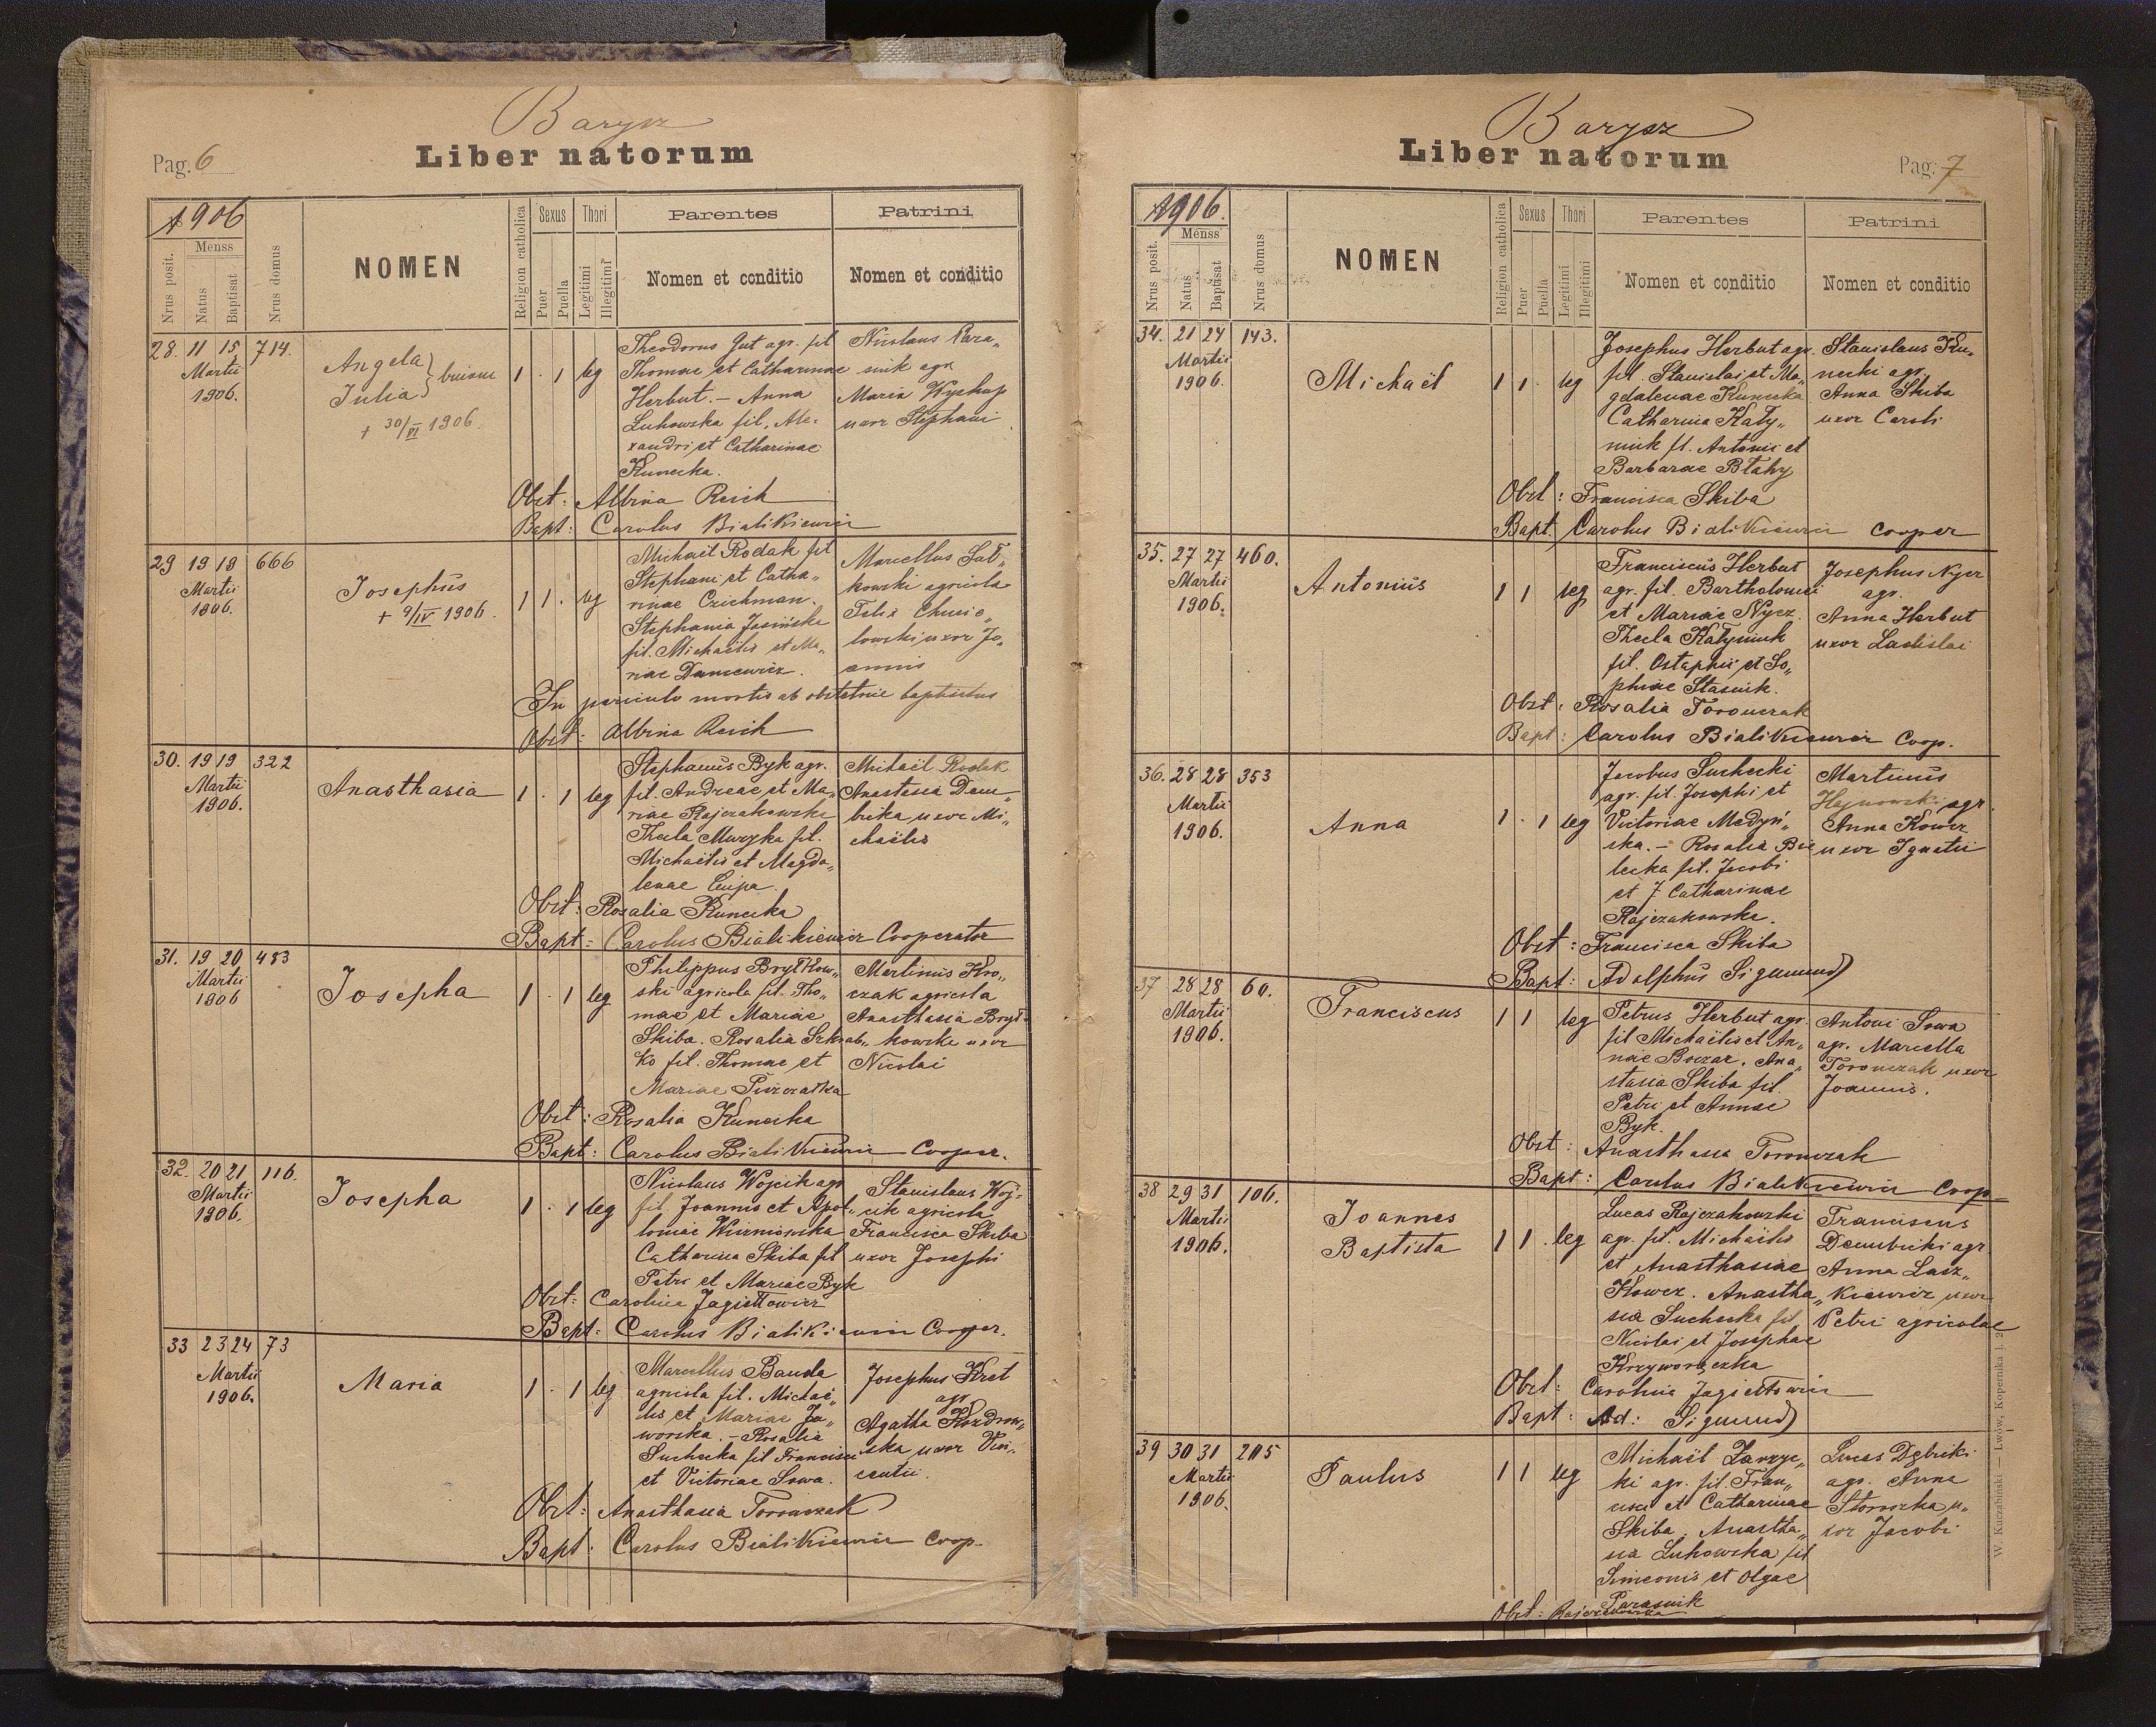 Barysz
Liber natorum
Pag. 6
1906
Nrus posit.
Menss
Natus
Baptisat
Nrus domus
NOMEN
Religion catholica
Sexus
Puer
Puella
Thori
Legitimi
Illegitimi
Parentes
Nomen et conditio
Patrini
Nomen et conditio
28. 11 15 714.
Martii
1906.
Angela
Julia
+ 30/VI 1906.
1 . 1 leg
Theodorus Gut agr. fil
Thomae et Catharinae
Herbut. – Anna
Luhowska fil. Ale-
xandri et Catharinae
Kunecka.
Nicolaus Para„
siuk agr
Maria Wyskup
uxor Stephani
Obst: Albina Reich
Bapt: Carolus Bialikiewicz
29 19 19 666
Martii
1906.
Josephus
+ 9/IV 1906.
1 1 . leg
Michael Rodak fil
Stephani et Catha„
rinae Czichman.
Stephania Jasińska
fil. Michaëlis et Ma„
riae Dancewicz.
Marcellus Sut„
kowski agricola
uxor Jo„
annis
In periculo mortis ab obstetrice baptisatus
Obst: Albina Reich
30. 19 19 322
Martii
1906.
Anasthasia
1 . 1 leg
Stephanus Byk agr.
fil. Andreae et Ma„
riae Rajczakowska
Thecla Muzyka fil.
Michaëlis et Magda„
lenae Ciupa.
Michaël Rodak
Anastasia Dem„
bicka uxor Mi„
chaëlis
Obst: Rosalia Kunecka
Bapt: Carolus Bialikiewicz Cooperator
31. 19 20 483
Martii
1906
Josepha
1 . 1 leg
Philippus Brytkow„
ski agricola fil. Tho„
mae et Mariae
Skiba. Rosalia Szkrab„
ko fil. Thomae et
Mariae
Martinus Kro„
czak agricola
Anasthasia Bryt„
kowska uxor
Nicolai
Obst: Rosalia Kunecka
Bapt: Carolus Bialikiewicz Cooper.
32. 20 21 116.
Martii
1906.
Josepha
1 . 1 leg
Nicolaus Wojcik agr
fil. Joannis et Apol„
loniae
Catharina Skiba fil
Petri et Mariae Byk
Stanislaus Woj„
cik agricola
Francisca Skiba
uxor Josephi
Obst: Carolina Jagiełłowicz
Bapt: Carolus Bialikiewicz Cooper.
33 23 24 73
Martii
1906.
Maria
1 . 1 leg
Marcellus Banda
agricola fil. Michaë„
lis et Mariae Ja„
worska. – Rosalia
Suchecka fil Francisci
et Victoriae Sowa.
Josephus Kret
agr
Agatha Kozdrow„
ska uxor Vin„
centii.
Obst: Anasthasia Toronczak
Bapt: Carolus Bialikiewicz Coop.
Barysz
Liber natorum
Pag: 7
1906.
Nrus posit.
Menss
Natus
Baptisat
Nrus domus
NOMEN
Religion catholica
Sexus
Puer
Puella
Thori
Legitimi
Illegitimi
Parentes
Nomen et conditio
Patrini
Nomen et conditio
34. 21 24 143.
Martii
1906.
Michaël
1 1 . leg
Josephus Herbut agr.
fil. Stanislai et Ma„
gdalenae Kunecka
Catharina Katy„
niuk fil. Antonii et
Barbarae Błahy
Stanislaus Ku„
necki agr.
Anna Skiba
uxor Caroli
Obst: Francisca Skiba
Bapt. Carolus Bialikiewicz cooper
35. 27 27 460.
Martii
1906.
Antonius
1 1 leg
Franciscus Herbut
agr. fil. Bartholomei
et Mariae Nycz
Thecla Katyniuk
fil. Ostaphii et So„
phiae Stasiuk.
Josephus Nycz
agr.
Anna Herbut
uxor Ladislai
Obst: Rosalia Toronczak
Bapt: Carolus Bialikiewicz Coop.
36. 28 28 353
Martii
1906.
Anna
1 . 1 leg
Jacobus Suchecki
agr. fil. Josephi et
Victoriae Medyń„
ska. – Rosalia Bie
lecka fil. Jacobi
et Catharinae
Rajczakowska.
Martinus
Hajnowski agr.
Anna Kowcz
uxor Ignatii
Obst: Francisca Skiba
Bapt: Adolphus Sigmund
37 28 28 60.
Martii
1906.
Franciscus
1 1 leg
Petrus Herbut agr.
fil Michaëlis et An„
nae Boczar. Ana„
stasia Skiba fil.
Petri et Annae
Byk.
Antoni Sowa
agr. Marcella
Toronczak uxor
Joannis.
Obst: Anasthasia Toronczak
Bapt: Carolus Bialikiewicz Coop
38 29 31 106.
Martii
1906.
Joannes
Baptista
1 1 . leg
Lucas Rajczakowski
agr. fil. Michaëlis
et Anasthasiae
Kowcz. Anastha„
sia Suchecka fil.
Nicolai et Josephae
Krzyworączka
Franciscus
Dembicki agr
Anna Lasz„
kiewicz uxor
Petri agricolae
Obst: Carolina Jagiełłowicz
Bapt: Ad: Sigmund
39 30 31 205
Martii
1906.
Paulus
1 1 leg
Michaël Zarzyc„
ki agr. fil. Fran„
cisci et Catharinae
Skiba. Anastha„
sia Luhowska fil
Simeonis et Olgae
Parasiuk
Lucas Dębicki
agr. Anna
Storozka u„
xor Jacobi
Obst: Rajczakowska
W. Kuczabiński — Lwów, Kopernika l. 2